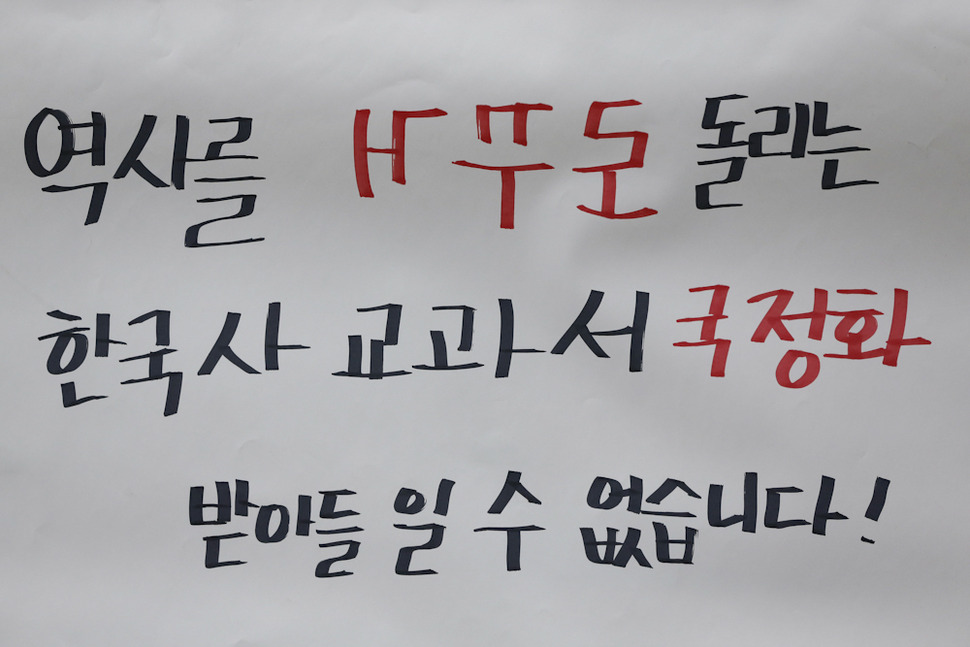 역사를 거꾸로 돌리는
한국사 교과서 국정화
받아들일 수 없습니다!